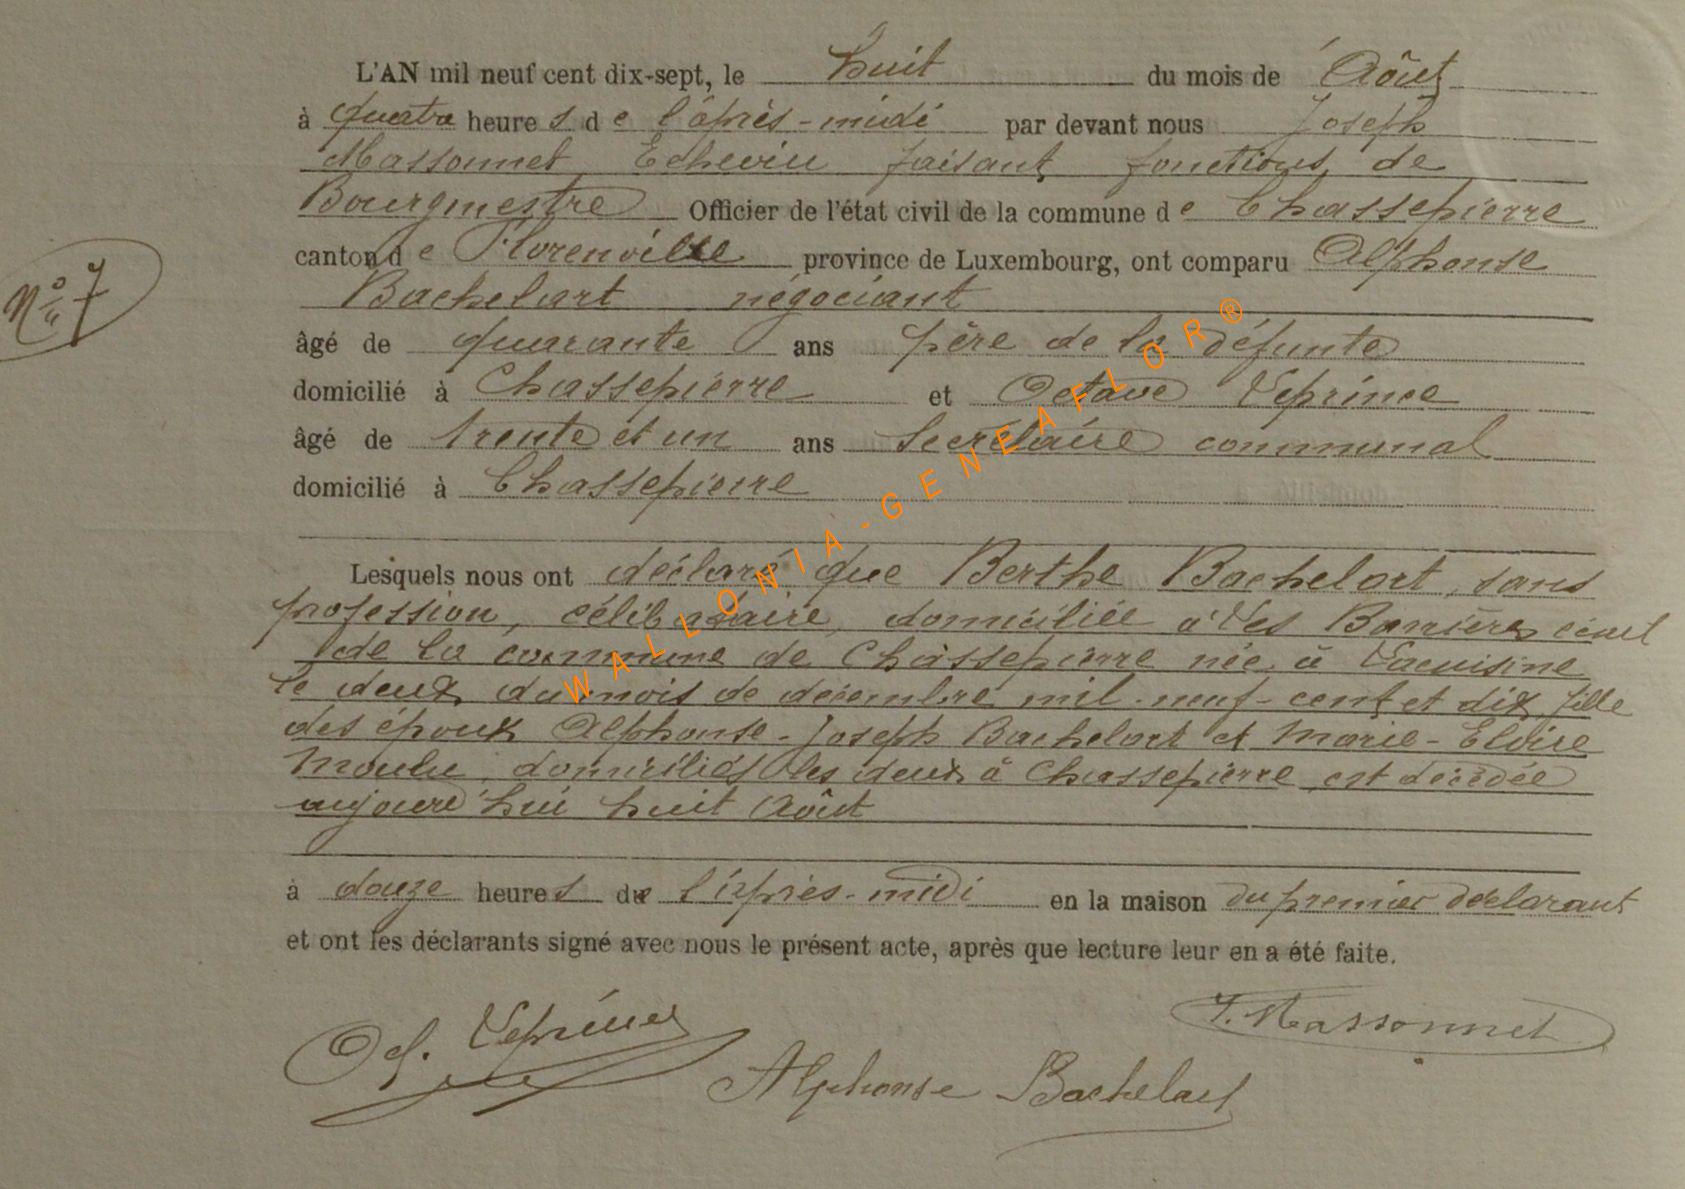 L'AN mil neuf cent dix-sept, le huit du mois de Août
à quatre heures de l'après-midi par devant nous Joseph
Massonnet Echevin faisant fonctions de
Bourgmestre Officier de l'état civil de la commune de Chassepierre
canton de Florenville province de Luxembourg, ont comparu Alphonse
Bachelart négociant
N° 7
âgé de quarante ans père de la défunte
domicilié à Chassepierre et Octave Leprince
âgé de trente et un ans Secrétaire communal
domicilié à Chassepierre
Lesquels nous ont déclaré que Berthe Bachelart, sans
profession, célibataire, domiciliée à Les
de la commune de Chassepierre née à Lacuisine
le deux du mois de décembre mil-neuf-cent et dix fille
des époux Alphonse-Joseph Bachelart et Marie-Eloïse
domiciliés les deux à Chassepierre est décédée
aujourd'hui huit Août
à douze heures de l'après-midi en la maison du premier déclarant
et ont les déclarants signé avec nous le présent acte, après que lecture leur en a été faite.
J. Massonnet
Oct. Leprince
Alphonse Bachelart
WALLONIA-GENEAFLOR®